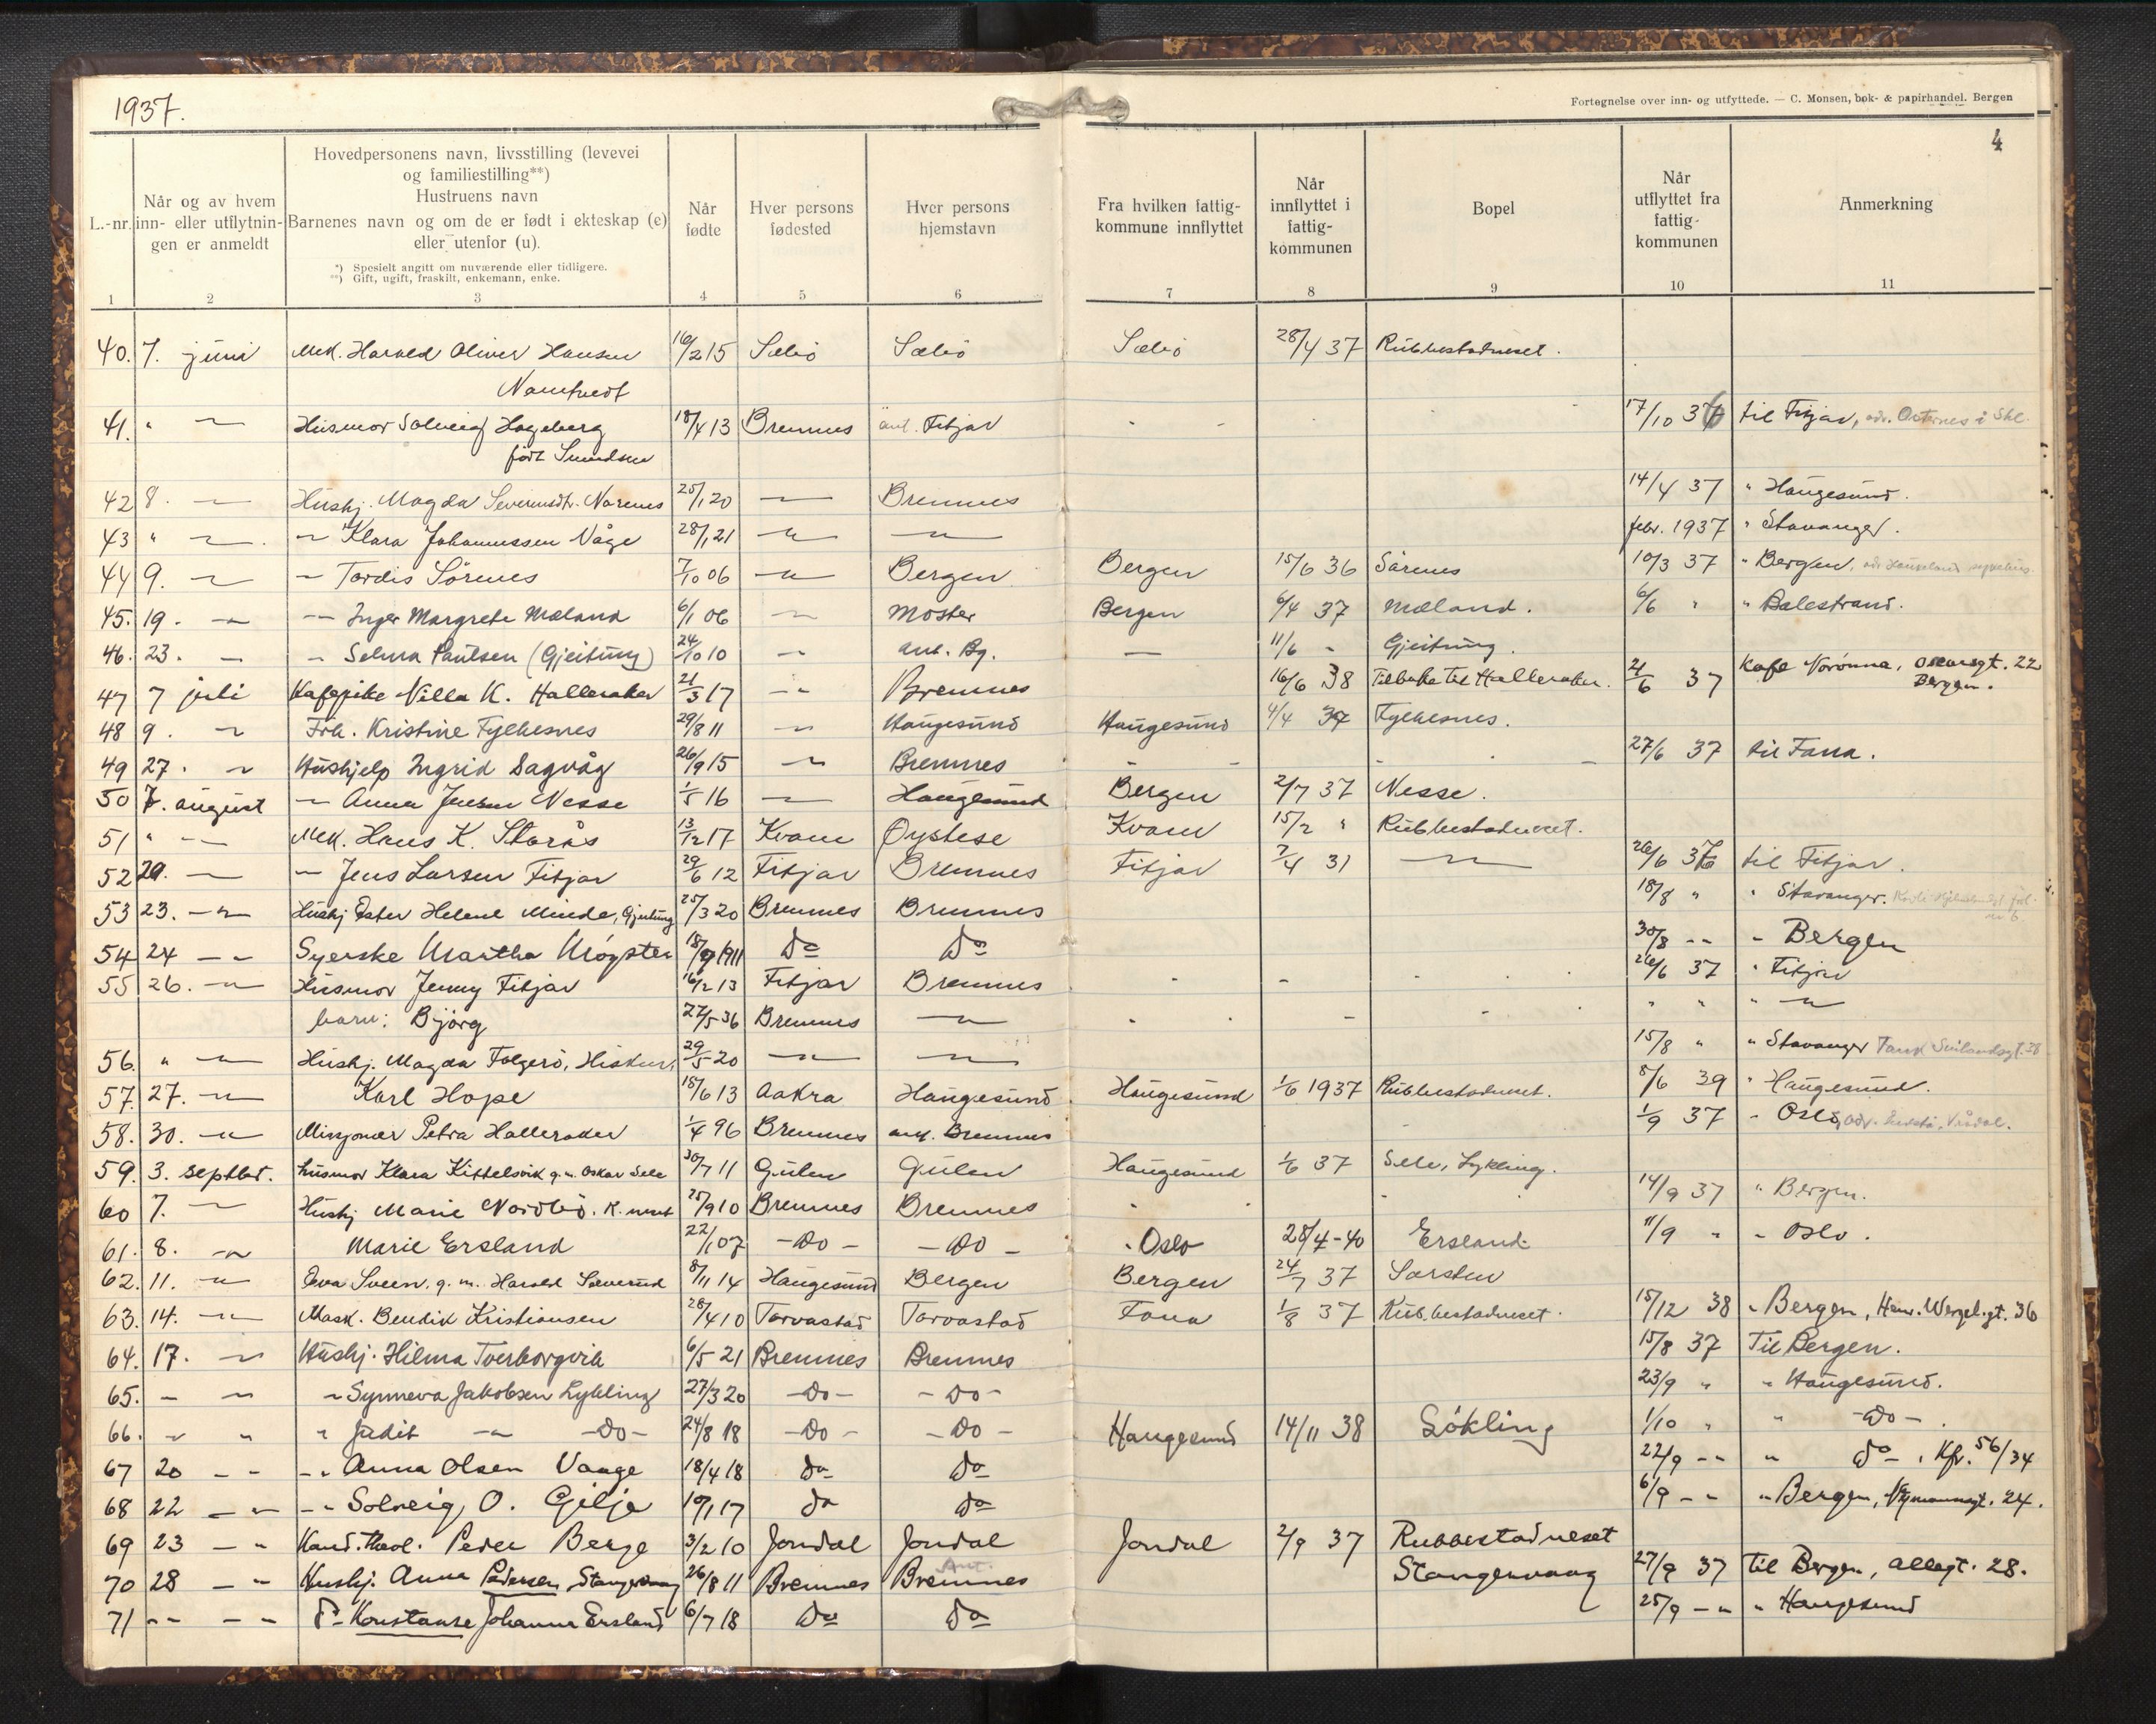 1937.
Fortegnelse over inn- og utfyttede. — C. Monsen, bok- & papirhandel. Bergen
4
L.-nr. Når og av hvem inn- eller utflytnin- gen er anmeldt Hovedpersonens navn, livsstilling (levevei og familiestilling**) Hustruens navn Barnenes navn og om de er født i ekteskap (e) eller utenfor (u). Når fødte Hver persons fødested Hver persons hjemstavn Fra hvilken fattig- kommune innflyttet Når innflyttet i fattig- kommunen Bopel Når utflyttet fra fattig- kommunen Anmerkning
*) Spesielt angitt om nuværende eller tidligere.
**) Gift, ugift, fraskilt, enkemann, enke.
1 2 3 4 5 6 7 8 9 10 11
40. 7. juni Mek. Harold Oliver Hansen 16/2 15 Sælió Sælió Sælió 28/4 37 Rubbestadneset.
41. " — Husmor Solveig Hageberg 18/4 13 Bremnes ant. Fitjar 17/10 37 til Fitjar,
født Simedsen
42 8. — Hushj. Magda Severinsdtr. Narenes 25/1 20 — Bremnes 14/4 37 " Haugesund.
43 " — — Klara Johannessen Våge 28/1 21 — — febr. 1937 " Stavanger.
44 9. — — Tordis Sörenes 7/10 06 — Bergen Bergen 15/6 36 Särenes 10/3 37 " Bergen,
45. 19. — — Inger Margrete Mæland 6/1 06 — Moster Bergen 6/4 37 Mæland. 6/6 " " Balestrand.
46. 23. — " Selma Paulsen (Gjeitung) 24/10 10 — ant. Bg. — 11/6 " Gjeitung.
47 7 juli Kafepike Villa K. Halleraker 21/3 17 — Bremnes 16/6 38 Tilbake til Halleraker. 21/6 37 Kafe Norönna, Oscarsgt. 22
Bergen.
48 9. — Frk. Kristine Fylkesnes 29/8 11 — Haugesund Haugesund 4/4 37 Fylkesnes.
49 27. — Hushjelp Ingrid Sagvåg 26/9 15 — Bremnes 27/6 37 til Fana.
50 7. august — Anna Jensen Nesse 1/5 16 — Haugesund Bergen 2/7 37 Nesse.
51 " — Mek. Hans K. Storås 13/12 17 Kvam Oystese Kvam 15/2 " Rubbestadneset.
52 20. — — Jens Larsen Fitjar 29/6 12 Fitjar Bremnes Fitjar 7/4 31 — 26/6 37 til Fitjar.
53 23. — Hushj Ester Helene Minde, Gjeitung 25/3 20 Bremnes Bremnes 18/8 " " Stavanger.
54 24 — Syerske Martha Mögster 18/9 1911 Do Do 30/8 -- " Bergen
55 26. — Husmor Jenny Fitjar 16/2 13 Fitjar Bremnes 26/6 37 " Fitjar
barn: Björg 27/5 36 Bremnes — " " " —
56. " — Hushj. Magda Folgerö, 29/5 20 — — 15/8 " " Stavanger
57. 27. — Karl Hope 15/6 13 Aakra Haugesund Haugesund 1/6 1937 Rubbestadneset. 8/6 39 " Haugesund.
58. 30. — Misjonær Petra Halleraker 1/4 96 Bremnes ant. Bremnes 1/9 37 - Oslo,
59. 3. septbr. husmor Klara Kittelsvik g. m. Oskar Sele 30/7 11 Gulen Gulen Haugesund 1/6 37 Sele, Lykling.
60 7. — Hushj Marie Nordbö. R. neset 25/9 10 Bremnes Bremnes 14/9 37 " Bergen.
61. 8. — Marie Ersland 22/1 07 -Do- -Do- . Oslo 28/4-40 Ersland 11/9 " - Oslo.
62. 11. — Eva Sveen. g. m. Harold Sæverud 8/11 14 Haugesund Bergen Bergen 24/7 37 Sorsten
63. 14. — Mask. Bendik Kristiansen 28/4 10 Torvastad Torvastad Fana 1/8 37 Rubbestadneset. 15/12 38 " Bergen, Henr. Wergel.gt. 36
64. 17. — Hushj. Hilma Tverborgvik 6/5 21 Bremnes Bremnes 15/8 37 Til Bergen.
65. — — " Synneva Jakobsen Lykling 27/3 20 -Do- -Do- 23/9 " " Haugesund.
66. — " " Judit — -Do- 24/8 18 -Do- -Do- Haugesund 14/11 38 Lökling 1/10 " " -Do-.
67 20 -- -- Anna Olsen Vaage 18/4 18 Do Do 22/9 -- " Do. Kfr. 56/34
68 22 -- -- Solveig O. Gilje 10/1 17 Do Do 6/9 -- " Bergen, Nymannsgt. 24.
69 23 -- Kand. theol. Peder Berge 3/2 10 Jondal Jondal Jondal 2/9 37 Rubbestadneset
Ant.
70 28 -- Hushj. Anna Pedersen Stangervaag 26/8 11 Bremnes Bremnes Stangervaag 27/9 37 til Bergen, Allegt. 28.
71 -- -- Do Konstanse Johanna Ersland 6/7 18 Do Do 25/9 -- " Haugesund